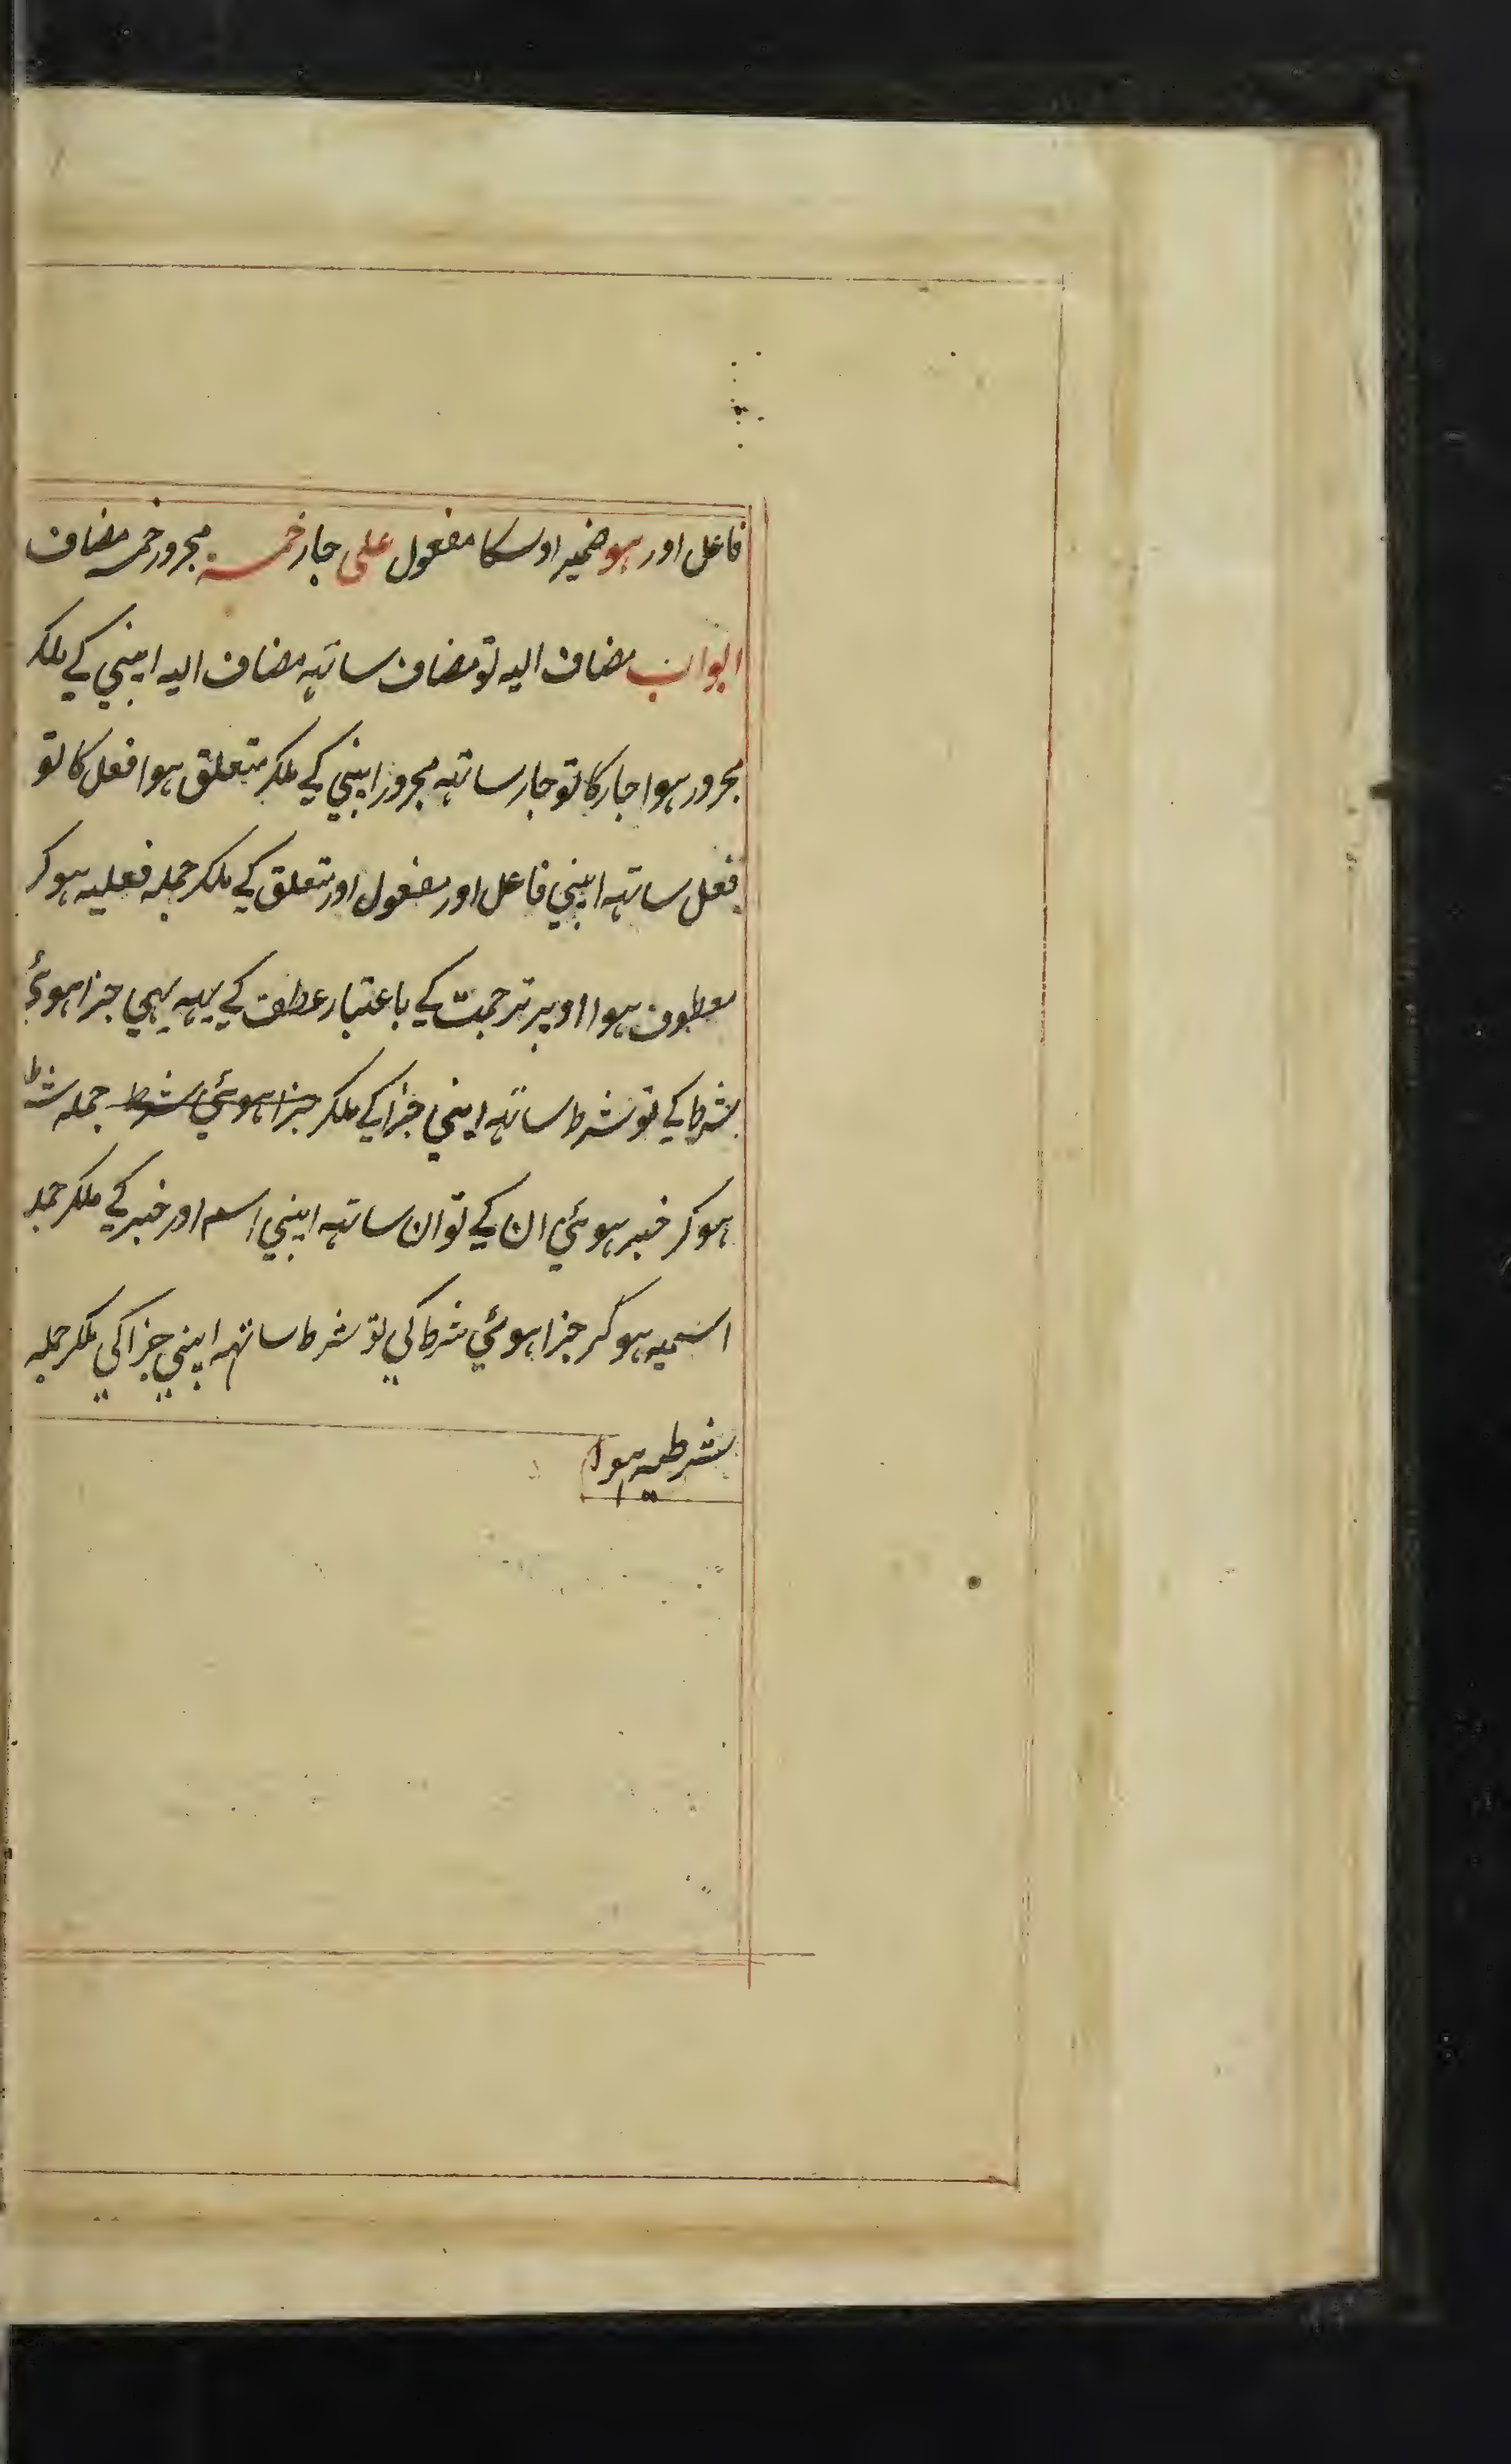 فاعل اور ہو ضمیر اوسکا مفعول علی جار خمسۃ مجرور خمسہ مضاف
ابواب مضاف الیہ تو مضاف ساتہہ مضاف الیہ اپنی کے ملکر
مجرور ہوا جار کا تو جار ساتہہ مجرور اپنی کے ملکر متعلق ہوا فعل کا تو
فعل ساتہہ اپنی فاعل اور مفعول اور متعلق کے ملکر جملہ فعلیہ ہو کر
معطوف ہوا اوپر ترجمت کے باعتبار عطف کے یہہ بہی جزا ہوئی
شرط کے تو شرط ساتہہ اپنی جزا کے ملکر جزا ہوئی شرط جملہ شرط
ہو کر خبر ہوئی ان کے تو ان ساتہہ اپنی اسم اور خبر کے ملکر جملہ
اسمیہ ہو کر جزا ہوئی شرط کی تو شرط ساتہہ اپنی جزا کی ملکر جملہ
شرطیہ ہوا